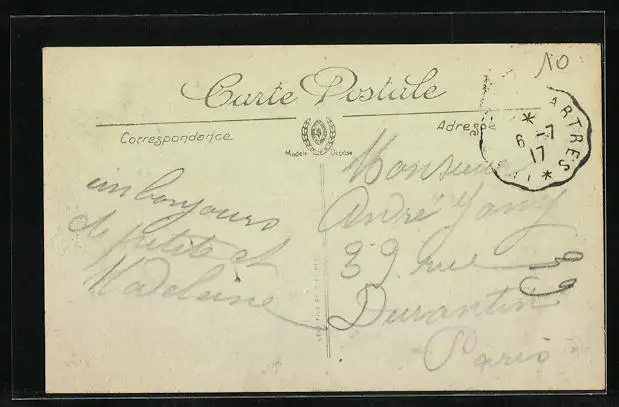 10
Carte Postale
Correspondance
Adresse
Modèle Déposé
ARTRES
6 -7
17
un bonjours
de petite et
Madeleine
Monsieur
André
39 rue
Durantin
Paris